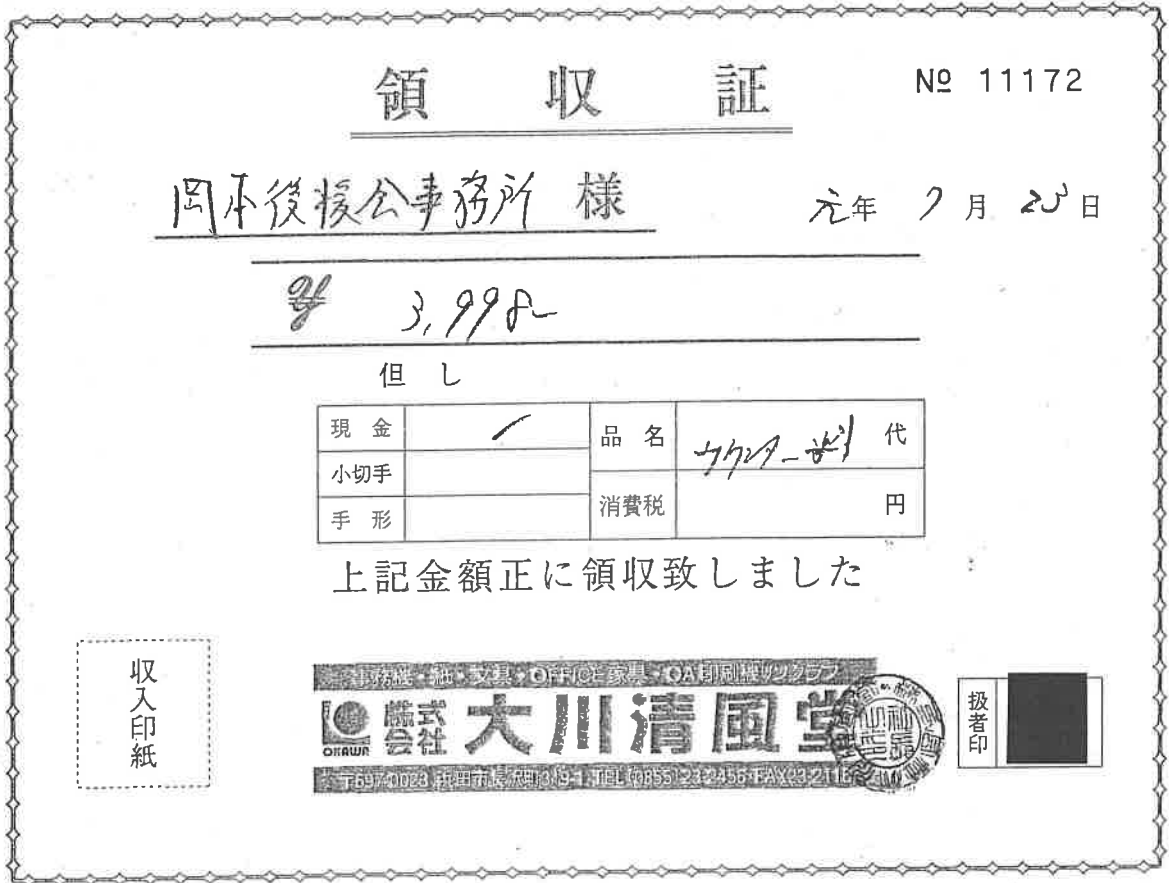 領収証
№ 11172
岡本後援会事務所 様
元年 7月 23日
¥ 3,998-
但し
現金
品名 カウンター 代
小切手
手形
消費税 円
上記金額正に領収致しました
収入印紙
事務機・紙・文具・OFFICE家具・OA印刷機リソグラフ
OKAWA 株式会社 大川清風堂
〒697-0023 浜田市長沢町319-1 TEL(0855)23-2456 FAX23-2116
扱者印